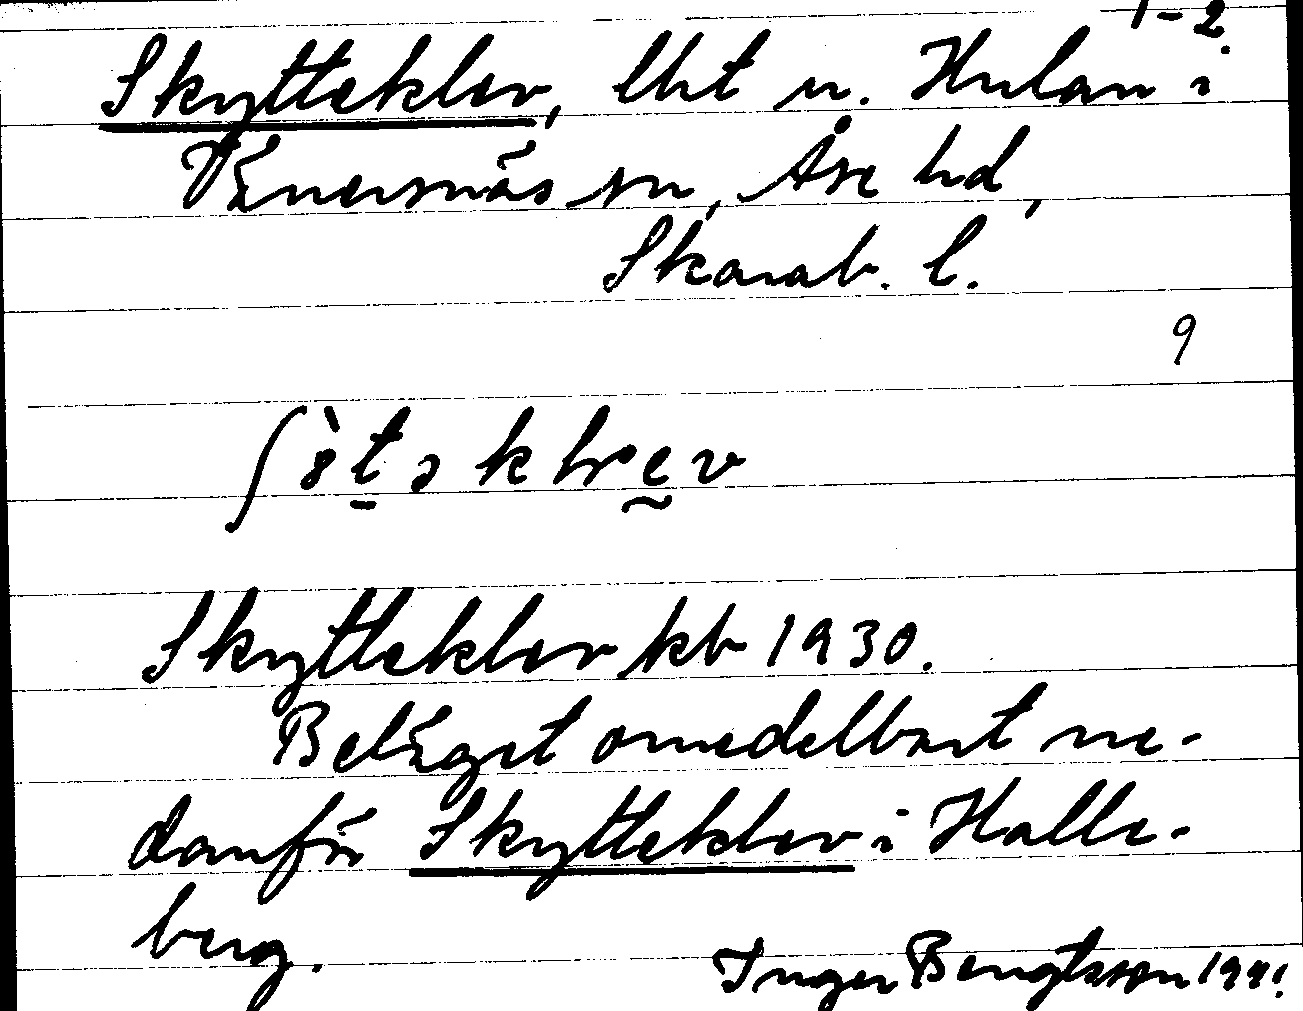 1-2.
Skytteklev, lht u. Hulan i
Vänersnäs sn, Åse hd,
Skarab. l.
9
Skytteklev kb 1930.
Beläget omedelbart ne-
danför Skytteklev i Halle-
berg.
Inger Bengtsson 1941.